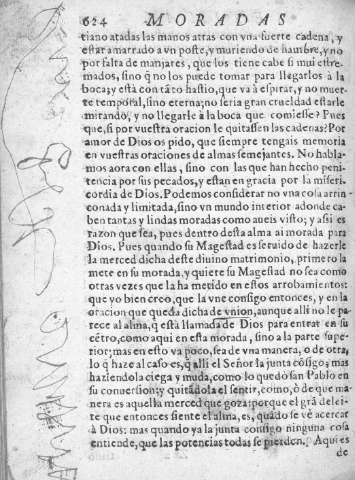 624 MORADAS
tiano atadas las manos atras con vna fuerte cadena, y
estar amarrado a vn poste, y muriendo de hambre, y no
por falta de manjares, que los tiene cabe si mui estre-
mados, sino q̃ no los puede tomar para llegarlos à la
boca; y està con tãto hastio, que va à espirar, y no muer-
te temporal, sino eterna; no seria gran crueldad estarle
mirando, y no llegarle à la boca que comiesse? Pues
que, si por vuestra oracion le quitassen las cadenas? Por
amor de Dios os pido, que siempre tengais memoria
en vuestras oraciones de almas semejantes. No habla-
mos aora con ellas, sino con las que han hecho peni-
tencia por sus pecados, y estan en gracia por la miseri-
cordia de Dios. Podemos considerar no vna cosa arrin-
conada y limitada, sino vn mundo interior adonde ca-
ben tantas y lindas moradas como aueis visto; y assi es
razon que sea, pues dentro desta alma ai morada para
Dios. Pues quando su Magestad es seruido de hazerle
la merced dicha deste diuino matrimonio, primero la
mete en su morada, y quiere su Magestad no sea como
otras vezes que la ha metido en estos arrobamientos:
que yo bien creo, que la vne consigo entonces, y en la
oracion que queda dicha de vnion, aunque alli no le pa-
rece al alma, q̃ està llamada de Dios para entrar en su
cẽtro, como aqui en esta morada, sino a la parte supe-
rior; mas en esto va poco, sea de vna manera, o de otra,
lo q̃ haze al caso es, q̃ alli el Señor la junta cõsigo; mas
haziendola ciega y muda, como lo quedò san Pablo en
su conuersion; y quitãdola el sentir, como, ò de que ma-
nera es aquella merced que goza: porque el grã delei-
te que entonces siente el alma, es, quãdo se vè acercar
à Dios: mas quando ya la junta consigo ninguna cosa
entiende, que las potencias todas se pierden. Aqui es
de